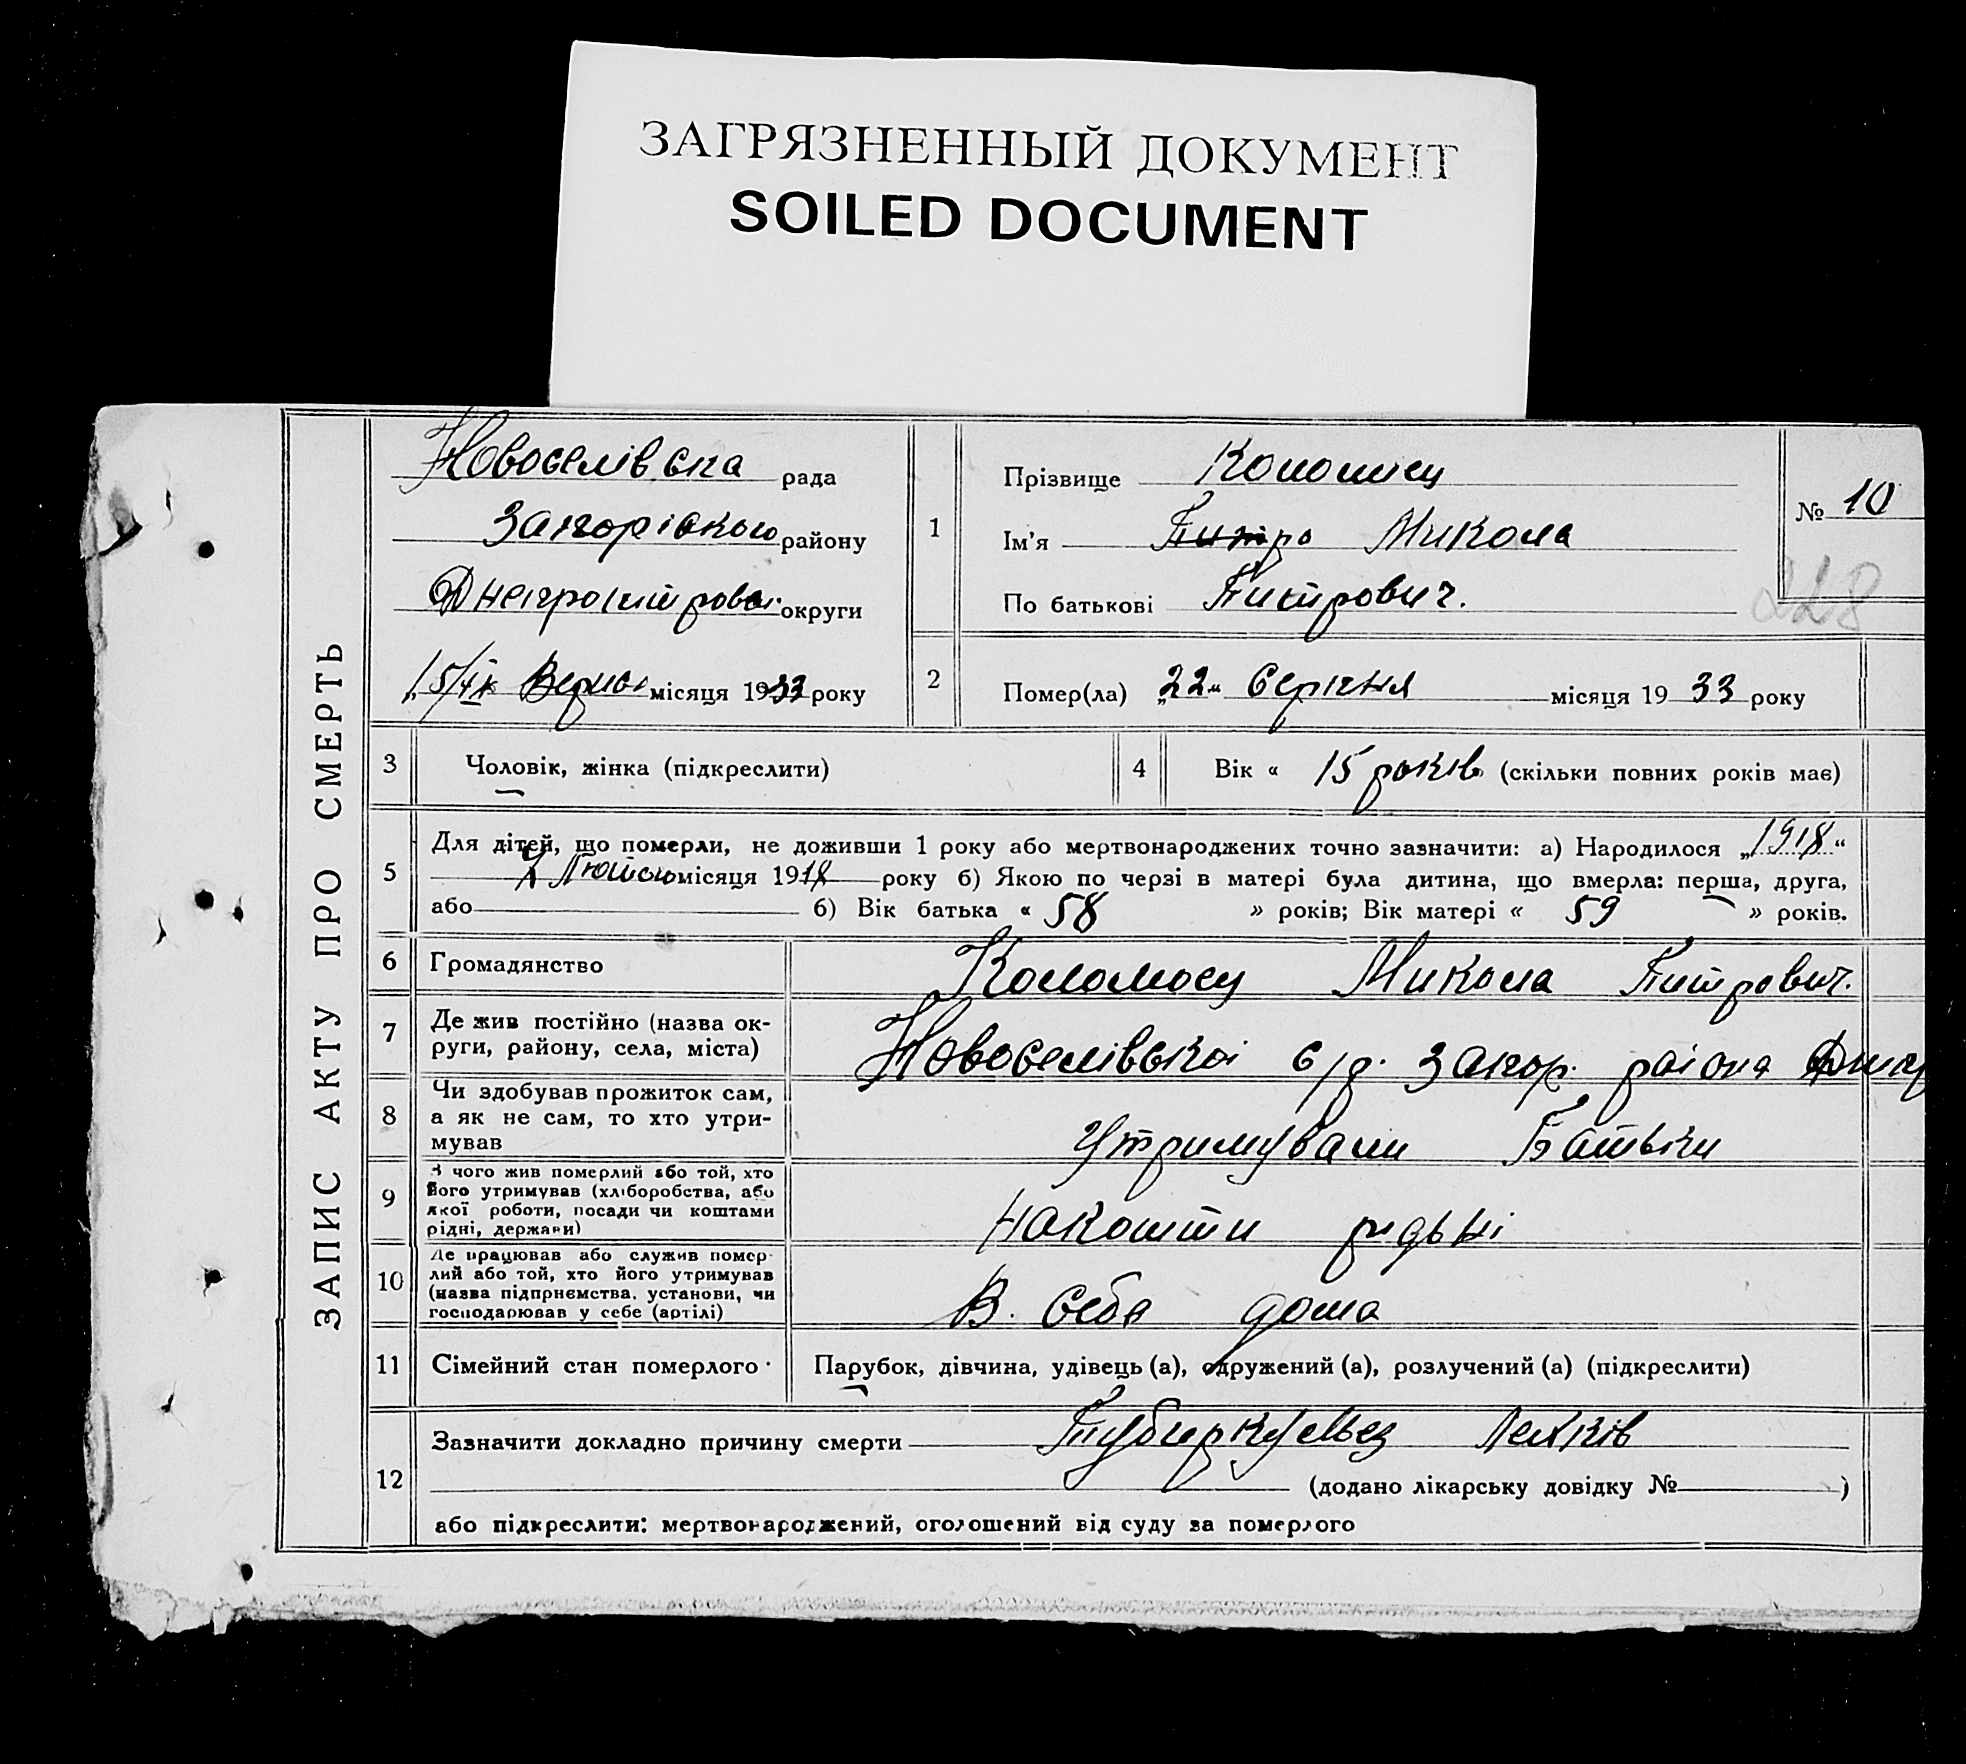 ЗАГРЯЗНЕННЫЙ ДОКУМЕНТ
SOILED DOCUMENT
ЗАПИС АКТУ ПРО СМЕРТЬ
Новоселівска рада
району
округи
місяця 1933 року
1
Прізвище
Ім'я Питро Микола
По батькові Питрович.
№ 10
228
2
Помер(ла) „22" Серпня місяця 19 33 року
3
Чоловік, жінка (підкреслити)
4
Вік « 15 років » (скільки повних років має)
5
Для дітей, що померли, не доживши 1 року або мертвонароджених точно зазначити: а) Народилося „1918"
місяця 1918 року б) Якою по черзі в матері була дитина, що вмерла: перша, друга,
або б) Вік батька « 58 » років; Вік матері « 59 » років.
6
Громадянство
Микола Питрович.
7
Де жив постійно (назва ок-
руги, району, села, міста)
Новоселівскоі с/р. Запор. раіона
8
Чи здобував прожиток сам,
а як не сам, то хто утри-
мував
Утримували Батьки
9
З чого жив померлий або той, хто
його утримував (хліборобства, або
якої роботи, посади чи коштами
рідні, держави)
накошти ридьні
10
Де працював або служив помер-
лий або той, хто його утримував
(назва підприємства, установи, чи
господарював у себе (артілі)
В. себе дома
11
Сімейний стан померлого
Парубок, дівчина, удівець (а), одружений (а), розлучений (а) (підкреслити)
12
Зазначити докладно причину смерти Тубиркульоз Лехків
(додано лікарську довідку № )
або підкреслити: мертвонароджений, оголошений від суду за померлого